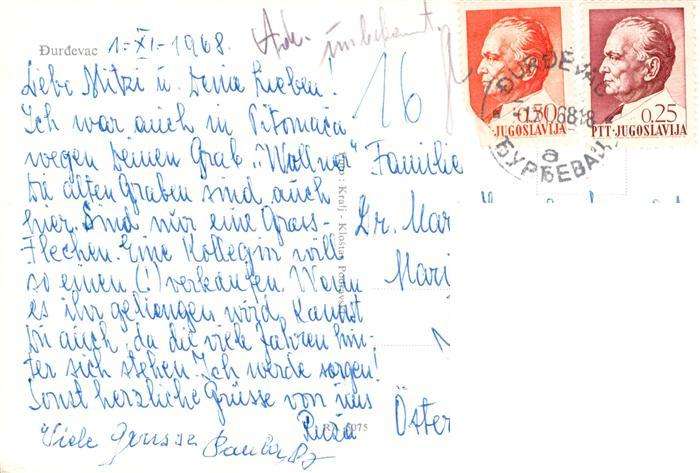 Đurđevac 1-XI-1968.
Adr. unbekannt
Lebe Mitzi u. Deine Lieben!
Ich war auch in Pitomača
wegen Deinen Grab „Wollner"
Die alten Graben sind auch
hier. Sind nur eine Grass-
Flechen. Eine Kollegin will
so einen (!) verkaufen. Wenn
es ihr gelingen wird, kannst
Du auch, da die viele Jahren hin-
ter sich stehen. Ich werde sorgen!
Sonst herzliche Grüsse von uns
Ruža
Viele Grüsse
16
Familie
Dr. Mar
Mari
Öster
Kralj - Kloštar
5075
1.50
JUGOSLAVIJA
0.25
PTT · JUGOSLAVIJA
ĐURĐEVAC
68 18
a
ЂУРЂЕВАЦ